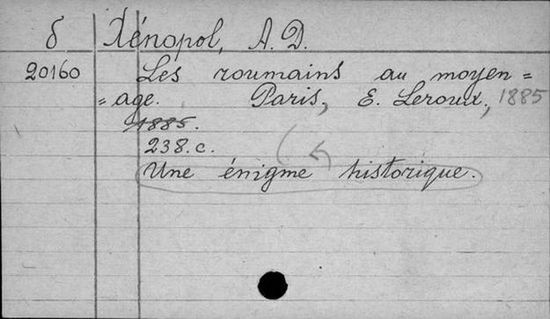 б Xénopol, A. D.
20160 Les roumains au moyen=
=age. Paris, E. Leroux, 1885
1885.
238.c.
Une énigme historique.